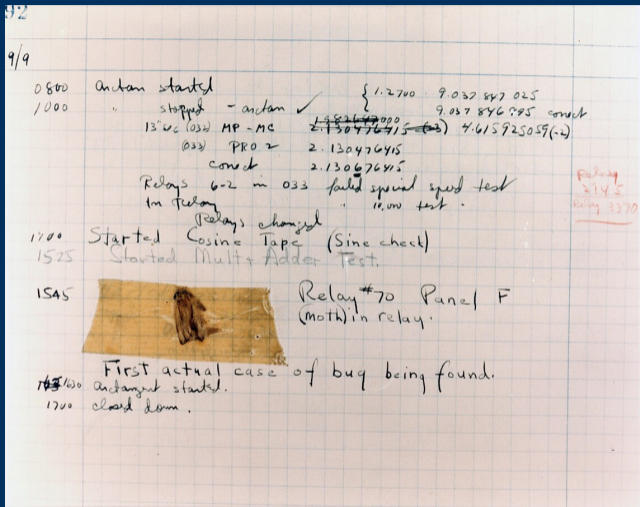 92
9/9
0800 Antan started { 1.2700 9.037 847 025
1000 " stopped - antan ✓ 9.037 846 795 conect
13"uc (032) MP - MC 2.130476415 (-3) 4.615925059(-2)
(033) PRO 2 2.130476415
conect 2.130676415
Relays 6-2 in 033 failed special speed test
In relay " 10,000 test .
Relays changed
1700 Started Cosine Tape (Sine check)
1525 Started Mult + Adder Test.
1545 Relay #70 Panel F
(moth) in relay.
First actual case of bug being found.
1630 antangent started.
1700 closed down .
Relay
Relay 3370